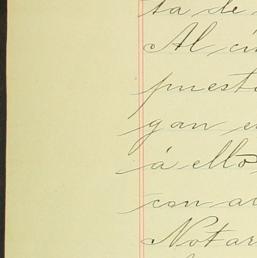 ta de
Al
puest
gan e
á ello,
con a
Notar